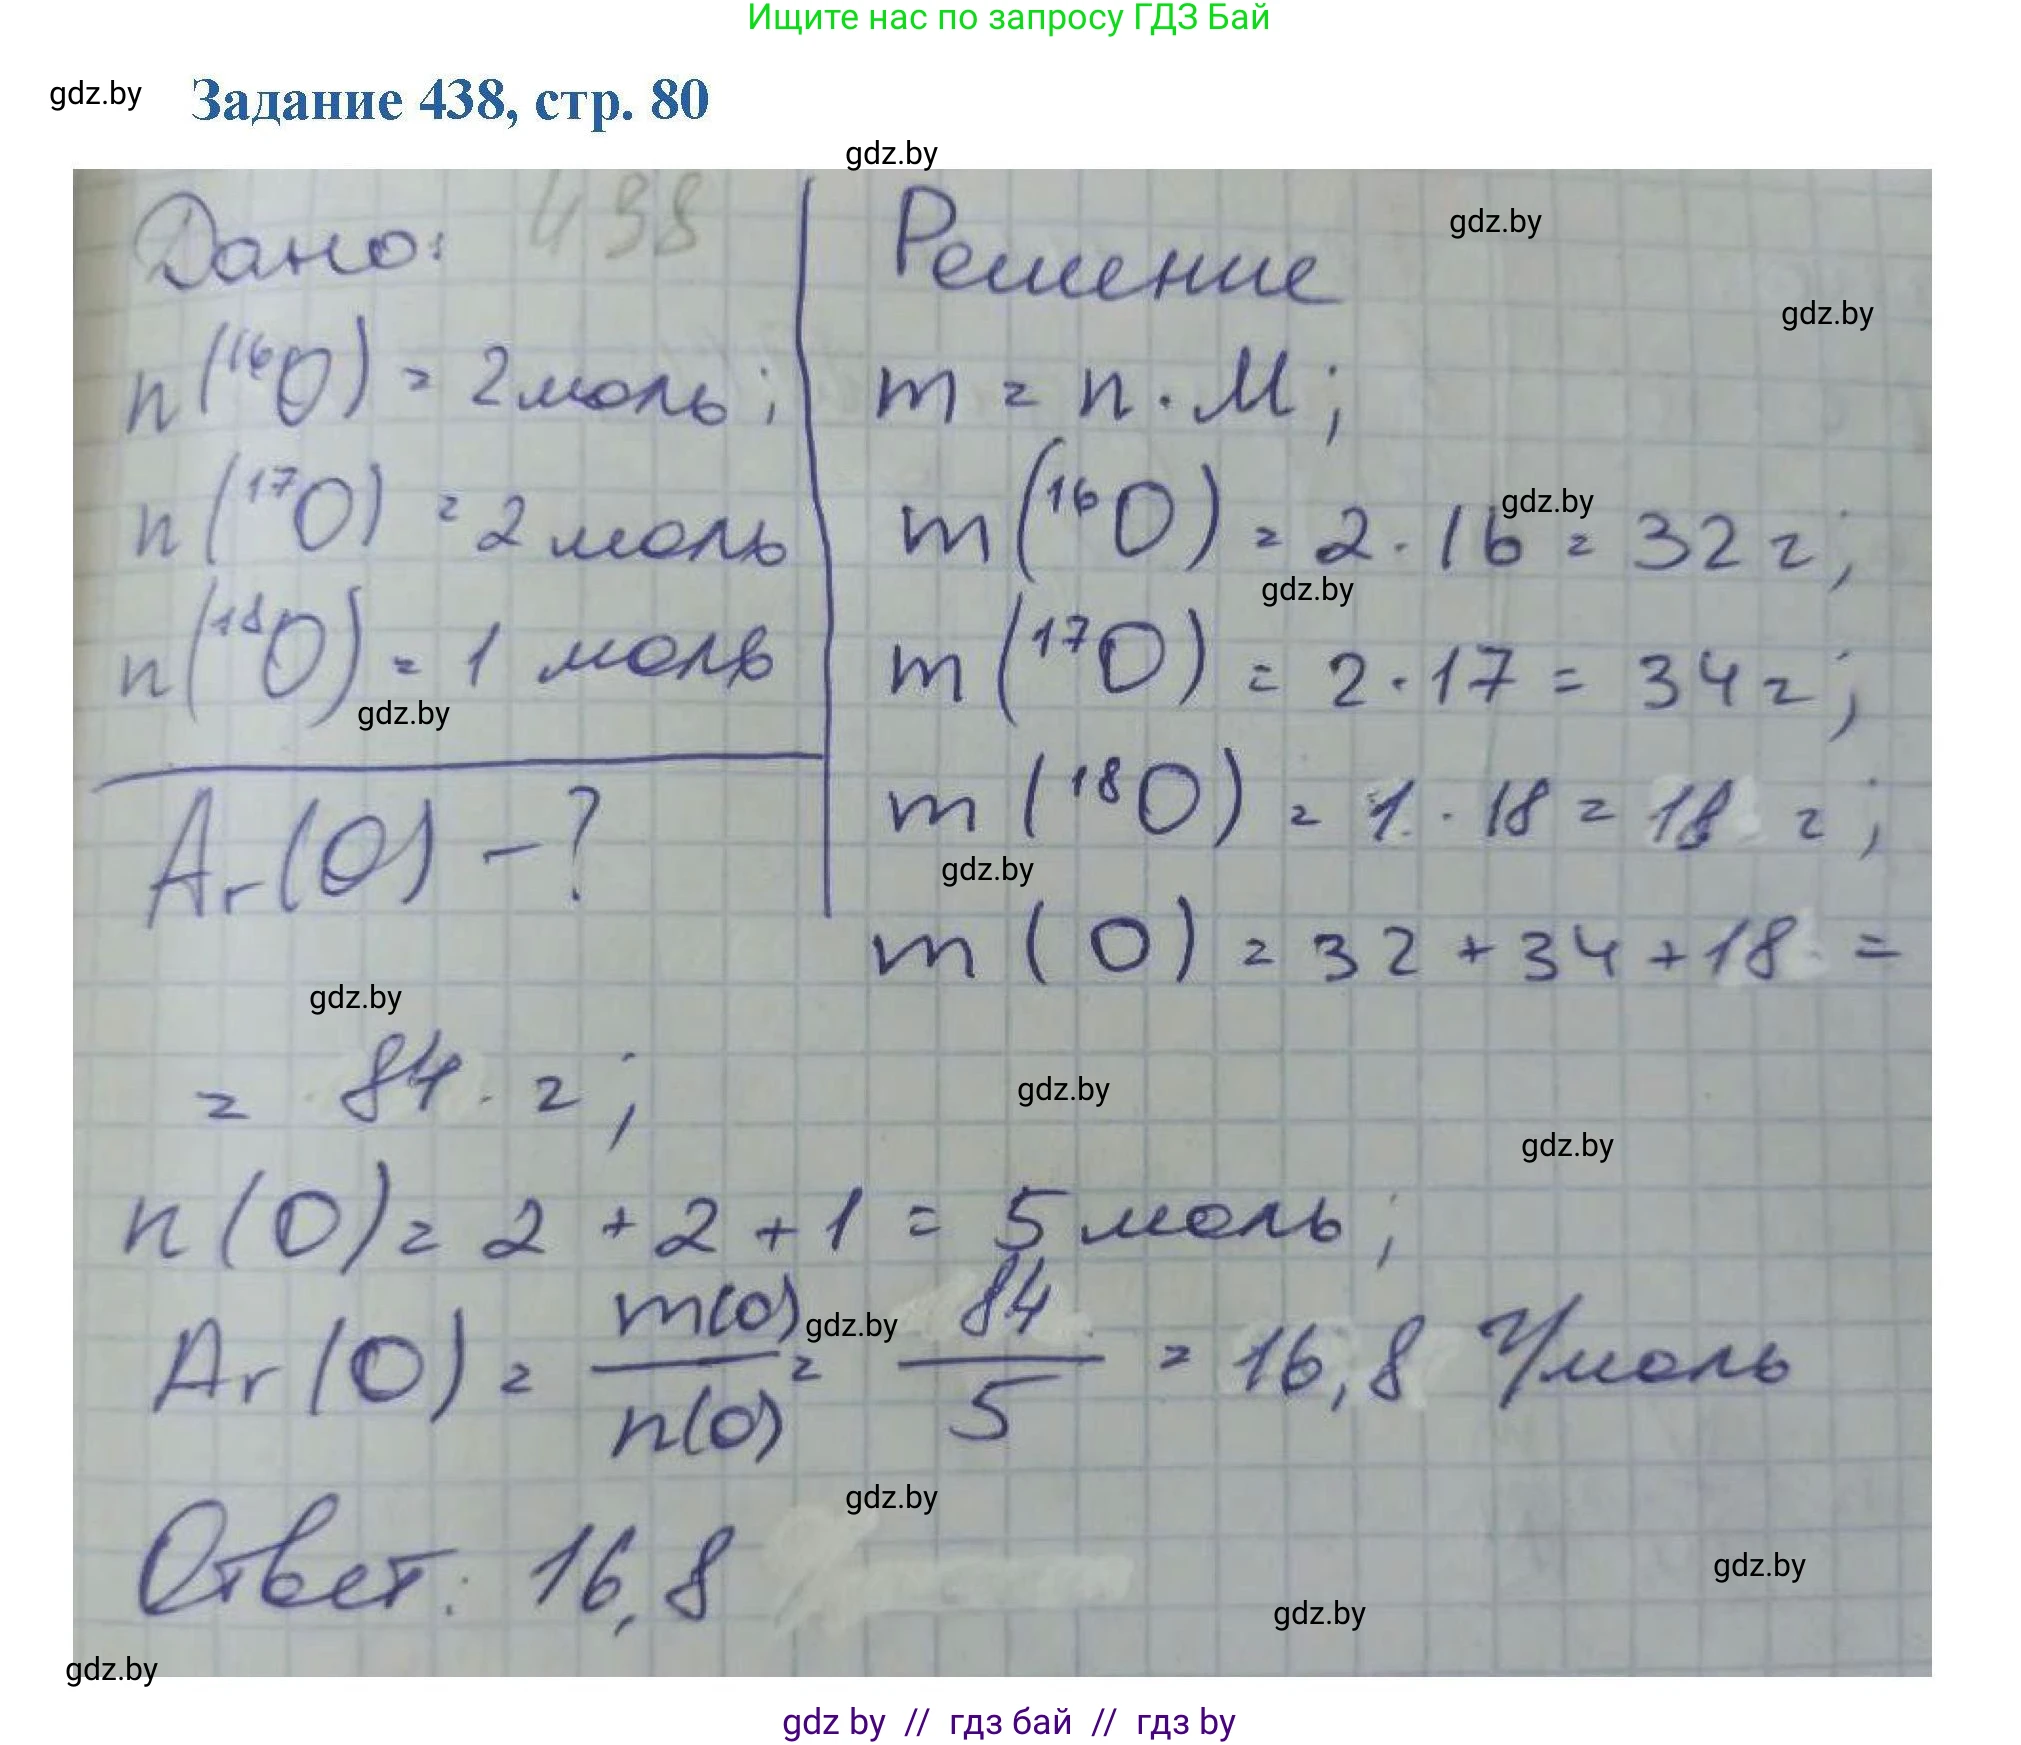 Ищите нас по запросу ГДЗ Бай
gdz.by
Задание 438, стр. 80
gdz.by
438
Дано:
n(¹⁶O) = 2 моль;
n(¹⁷O) = 2 моль
n(¹⁸O) = 1 моль
gdz.by
Ar(O) - ?
Решение
gdz.by
gdz.by
m = n · M;
gdz.by
m(¹⁶O) = 2 · 16 = 32 г;
gdz.by
m(¹⁷O) = 2 · 17 = 34 г;
m(¹⁸O) = 1 · 18 = 18 г;
gdz.by
m(O) = 32 + 34 + 18 =
gdz.by
= 84 г;
gdz.by
gdz.by
n(O) = 2 + 2 + 1 = 5 моль;
Ar(O) = m(O)/n(O) = 84/5 = 16,8 г/моль
gdz.by
gdz.by
Ответ: 16,8
gdz.by
gdz.by
gdz.by
gdz by // гдз бай // гдз by